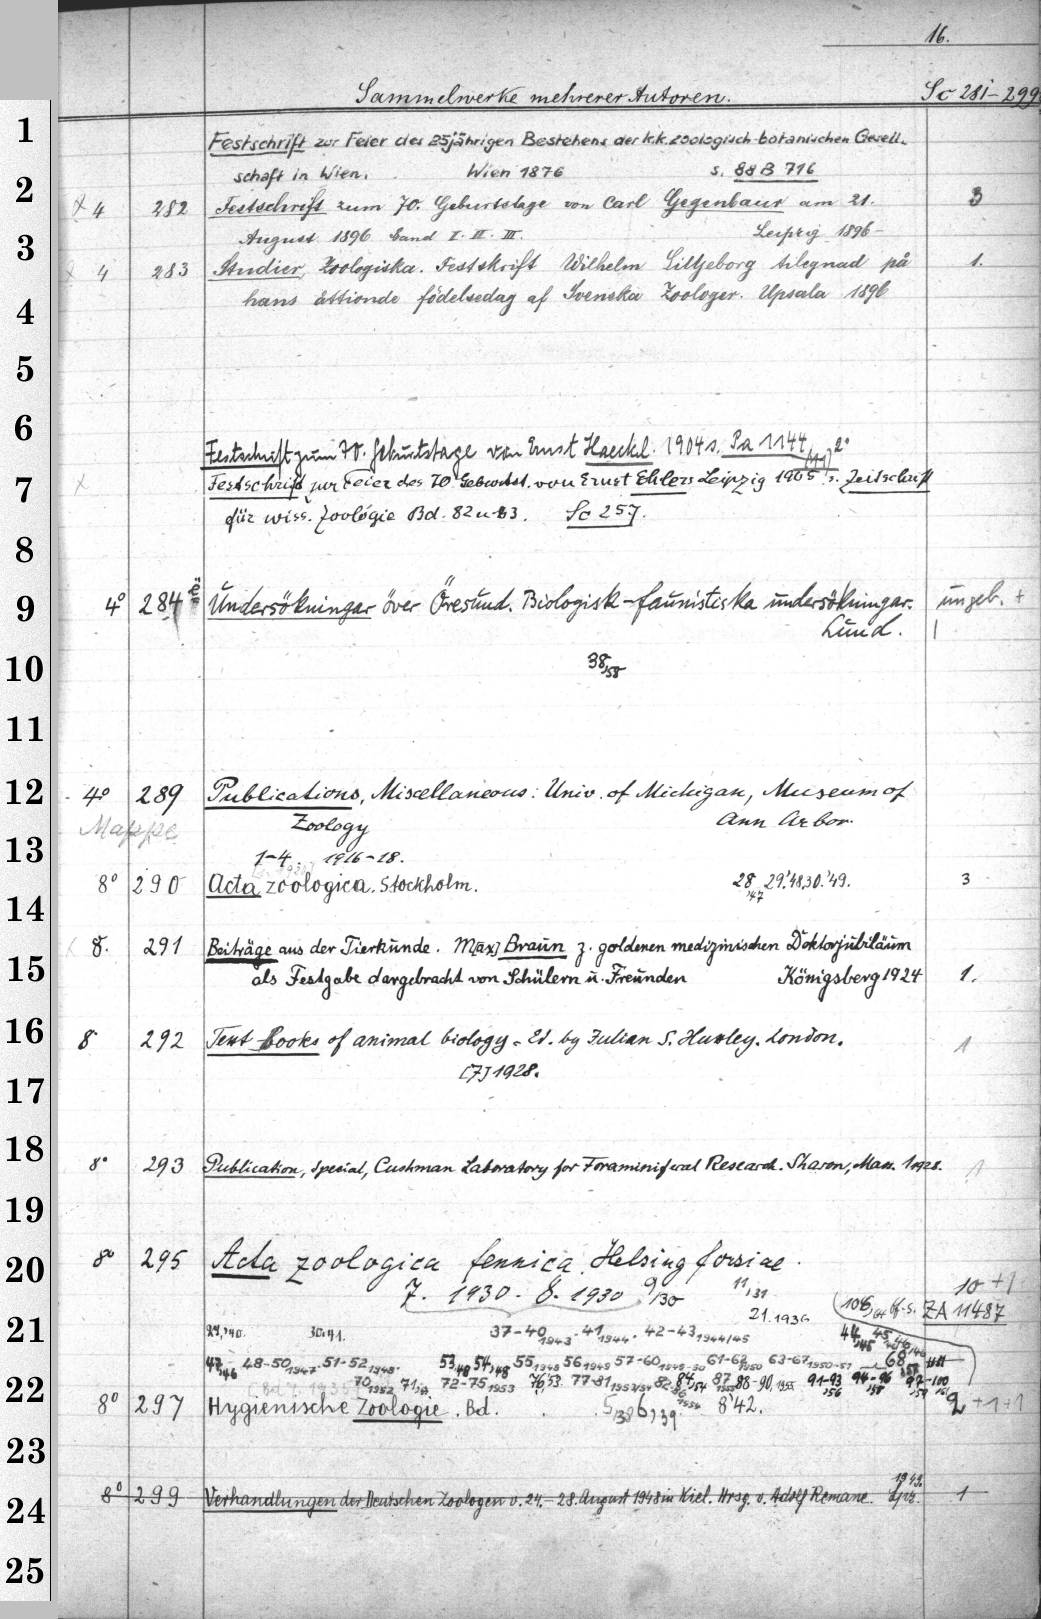 16.
Sammelwerke mehrerer Autoren. Sc 281-299
1
Festschrift zur Feier des 25jährigen Bestehens der k.k. zoologisch-botanischen Gesell-
2
schaft in Wien. Wien 1876 s. 88 B 716
x 4 282 Festschrift zum 70. Geburtstage von Carl Gegenbaur am 21. 3
3
August 1896 Band I. II. III. Leipzig 1896-
x 4 283 Studier, Zoologiska. Festskrift Wilhelm Lilljeborg tilegnad på 1.
4
hans åttionde födelsedag af Svenska Zoologer. Upsala 1896
5
6
Festschrift zum 70. Geburtstage von Ernst Haeckel. 1904 s. Pa 1144 2°
(11)
7
x Festschrift zur Feier des 70 Geburtst. von Ernst Ehlers Leipzig 1905 s. Zeitschrift
für wiss. Zoologie Bd. 82 u. 83. Sc 257.
8
9
4° 284 Undersökningar över Öresund. Biologisk-faunistiska undersökningar. ungeb. +
Lund. 1
10
38,58
11
12
4° 289 Publications, Miscellaneous: Univ. of Michigan, Museum of
Mappe Zoology Ann Arbor.
13
1-4. 1916-18.
8° 290 Acta zoologica. Stockholm. 28,'47 29.'48, 30.'49. 3
14
8. 291 Beiträge aus der Tierkunde. M[ax] Braun z. goldenen medizinischen Doktorjubiläum
15
als Festgabe dargebracht von Schülern u. Freunden Königsberg 1924 1.
16
8 292 Text-books of animal biology. Ed. by Julian S. Huxley. London. 1
[7] 1928.
17
18
8° 293 Publication, Special, Cushman Laboratory for Foraminiferal Research. Sharon, Mass. 1928. 1
19
8° 295 Acta zoologica fennica. Helsingforsiae.
20
7. 1930. 8. 1930 9/30 11,31 10 +1
21.1936 106,64 ff. s. ZA 11487
21
37-40 1943. 41 1944. 42-43 1944/45 44,45 45,46
47,46 48-50 1947. 51-52 1948. 53,48 54,48 55 1948 56 1949 57-60 1949-50 61-62 1950 63-67 1950-51 68
22
70 1952 71 72-75 1953 76,53. 77-81 88-90, 91-93,56 94-96 97-100
8° 297 Hygienische Zoologie. Bd. 5,38 6,39 8'42. 2 +1+1
23
8° 299 Verhandlungen der Deutschen Zoologen v. 24.-28. August 1948 in Kiel. Hrsg. v. Adolf Remane. Lpz. 1949. 1
24
25